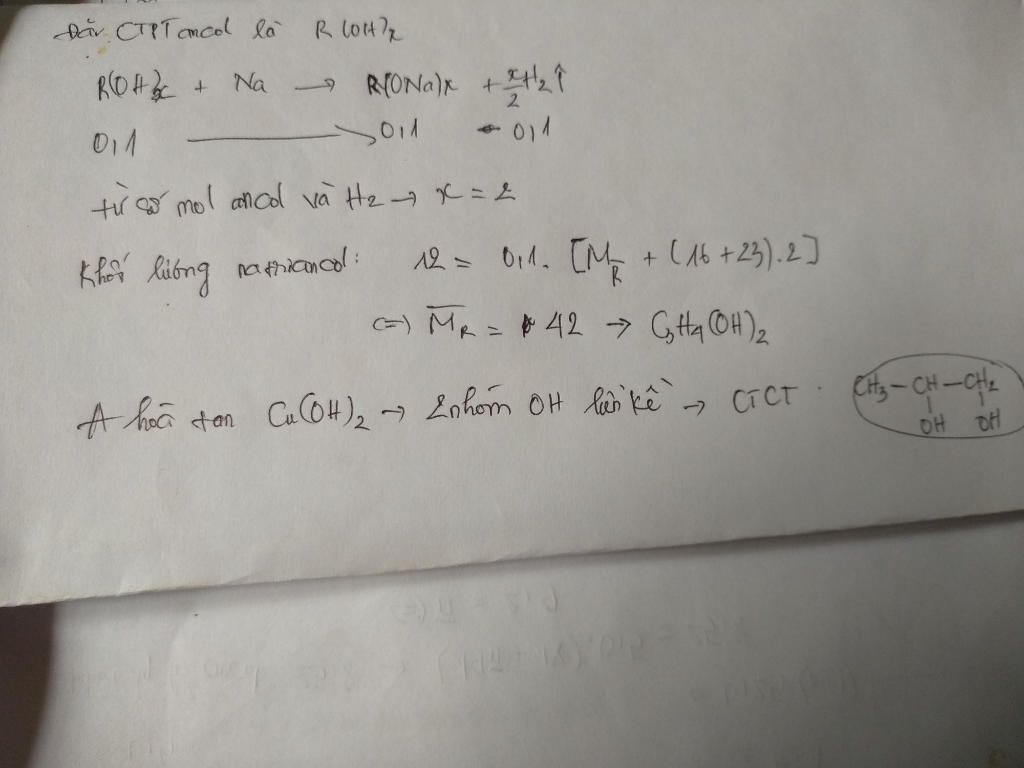 Đặt CTPT ancol là R(OH)x
R(OH)x + Na → R(ONa)x + x/2 H2↑
0,1 → 0,1 0,1
từ số mol ancol và H2 → x = 2
Khối lượng natriancol: 12 = 0,1. [MR + (16+23).2]
(=) MR = 42 → C3H4(OH)2
A hoà tan Cu(OH)2 → 2 nhóm OH liền kề → CTCT: CH3 – CH – CH2
OH OH